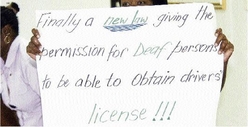 Finally a new law giving the
permission for Deaf persons
to be able to Obtain drivers'
license!!!